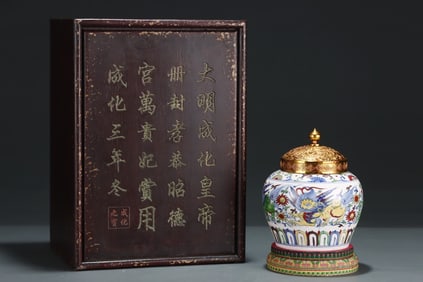 大明成化皇帝
册封孝恭昭德
宮萬貴妃賞用
成化三年冬
成化
之寳